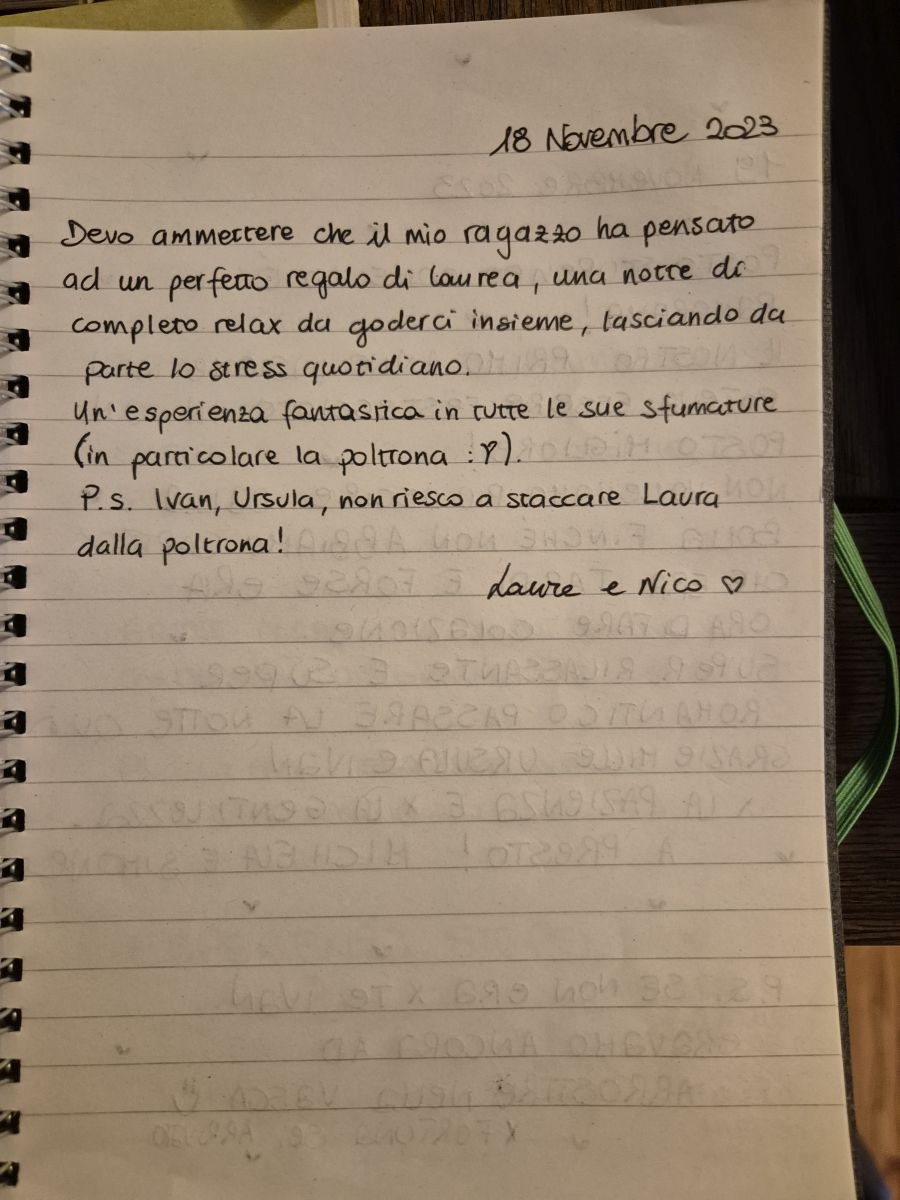 18 Novembre 2023
Devo ammettere che il mio ragazzo ha pensato
ad un perfetto regalo di laurea, una notte di
completo relax da goderci insieme, lasciando da
parte lo stress quotidiano.
Un'esperienza fantastica in tutte le sue sfumature
(in particolare la poltrona :P).
P.s. Ivan, Ursula, non riesco a staccare Laura
dalla poltrona!
Laura e Nico ♡